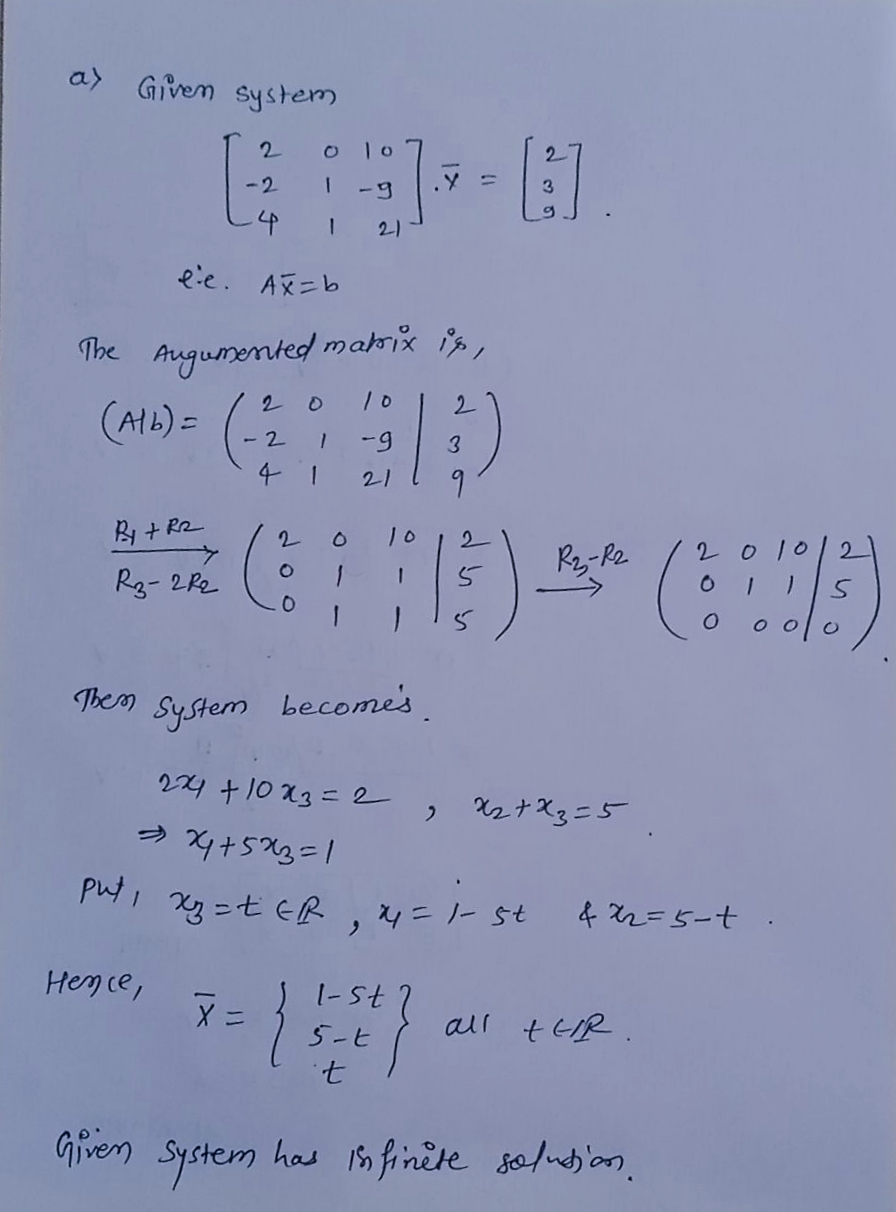 a) Given system
[ 2 0 10
-2 1 -9
4 1 21 ] . x̄ = [ 2
3
9 ] .
i.e. Ax̄ = b
The Augumented matrix is,
(A|b) = ( 2 0 10 | 2
-2 1 -9 | 3
4 1 21 | 9 )
R1 + R2
R3 - 2R2
→ ( 2 0 10 | 2
0 1 1 | 5
0 1 1 | 5 )
R3 - R2 → ( 2 0 10 | 2
0 1 1 | 5
0 0 0 | 0 ) .
Then system becomes.
2x1 + 10x3 = 2 , x2 + x3 = 5 .
⇒ x1 + 5x3 = 1
Put, x3 = t ∈ R , x1 = 1 - 5t & x2 = 5 - t .
Hence,
x̄ = { 1-5t
5-t
t } all t ∈ IR .
Given system has infinite solution.